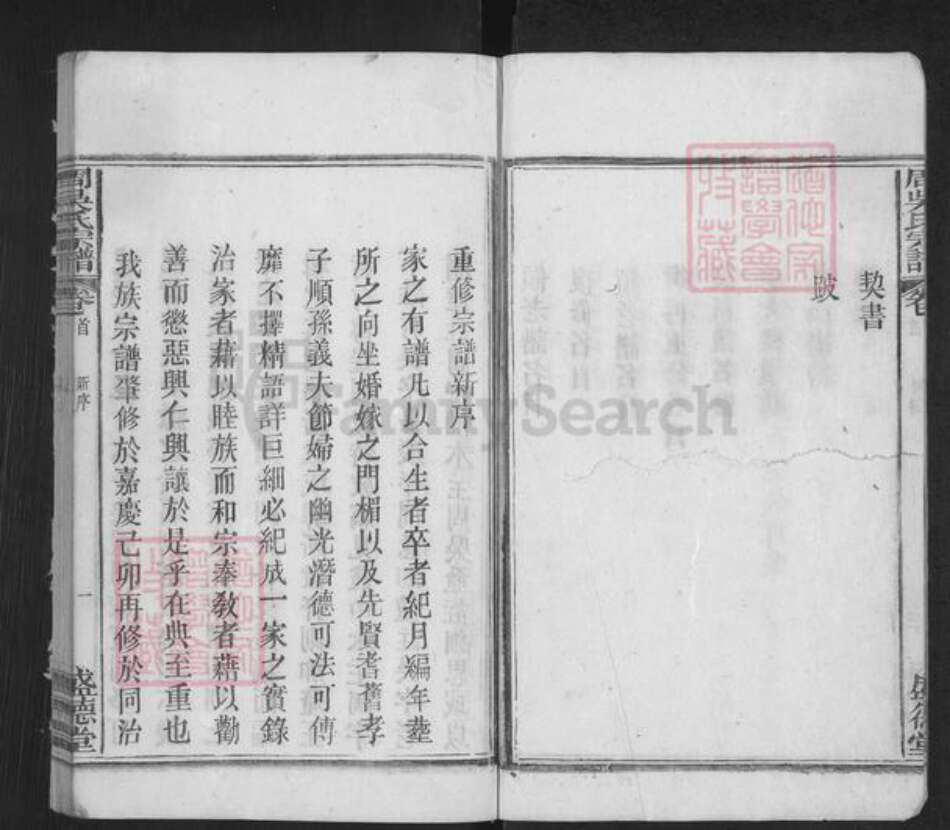 契書
跋
周吳氏宗譜
盛德堂
重修宗譜新序
家之有譜凡以合生者卒者紀月編年塟
所之向坐婚嫁之門楣以及先賢耆舊孝
子順孫義夫節婦之幽光潛德可法可傳
靡不擇精語詳巨細必紀成一家之實錄
治家者藉以睦族而和宗奉教者藉以勸
善而懲惡興仁興讓於是乎在典至重也
我族宗譜肇修於嘉慶己卯再修於同治
周吳氏宗譜
卷首
新序
一
盛德堂
FamilySearch